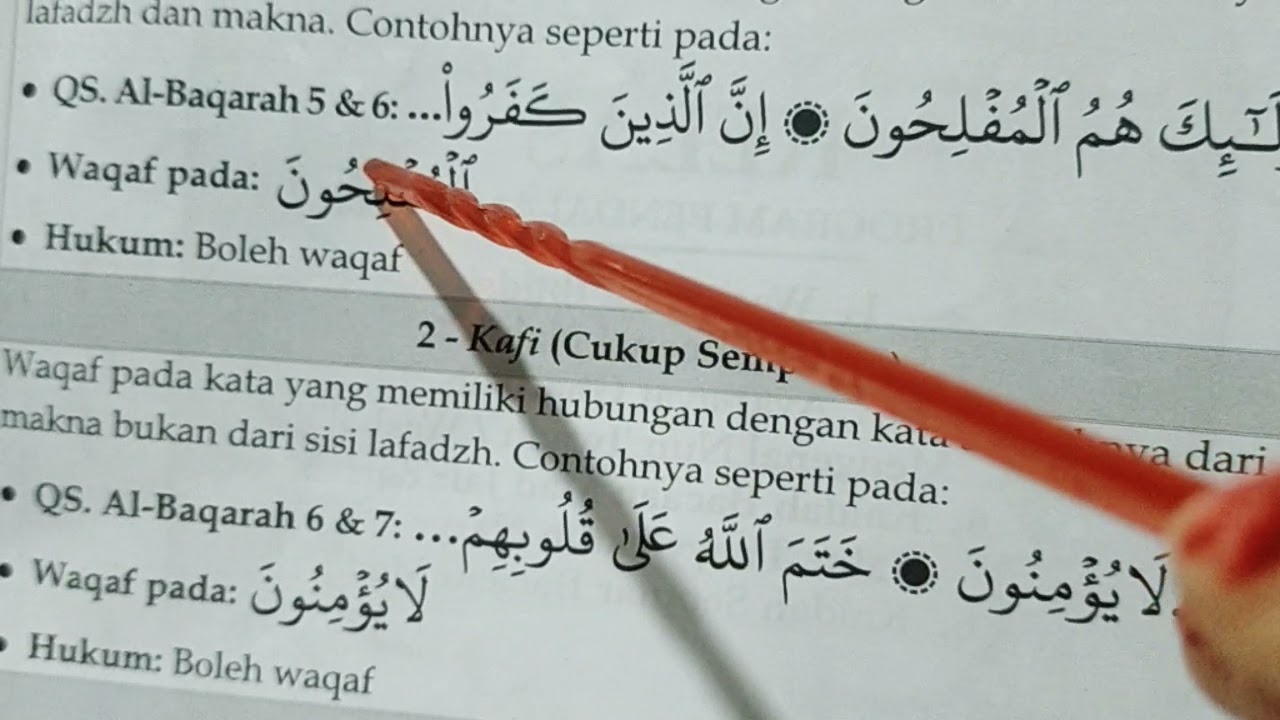 lafadzh dan makna. Contohnya seperti pada:
• QS. Al-Baqarah 5 & 6: هُمُ ٱلْمُفْلِحُونَ ۝ إِنَّ ٱلَّذِينَ كَفَرُوا۟...
• Waqaf pada:
• Hukum: Boleh waqaf
2 - Kafi (Cukup
Waqaf pada kata yang memiliki hubungan dengan dari
makna bukan dari sisi lafadzh. Contohnya seperti pada:
• QS. Al-Baqarah 6 & 7: لَا يُؤْمِنُونَ ۝ خَتَمَ ٱللَّهُ عَلَىٰ قُلُوبِهِمْ...
• Waqaf pada: لَا يُؤْمِنُونَ
• Hukum: Boleh waqaf